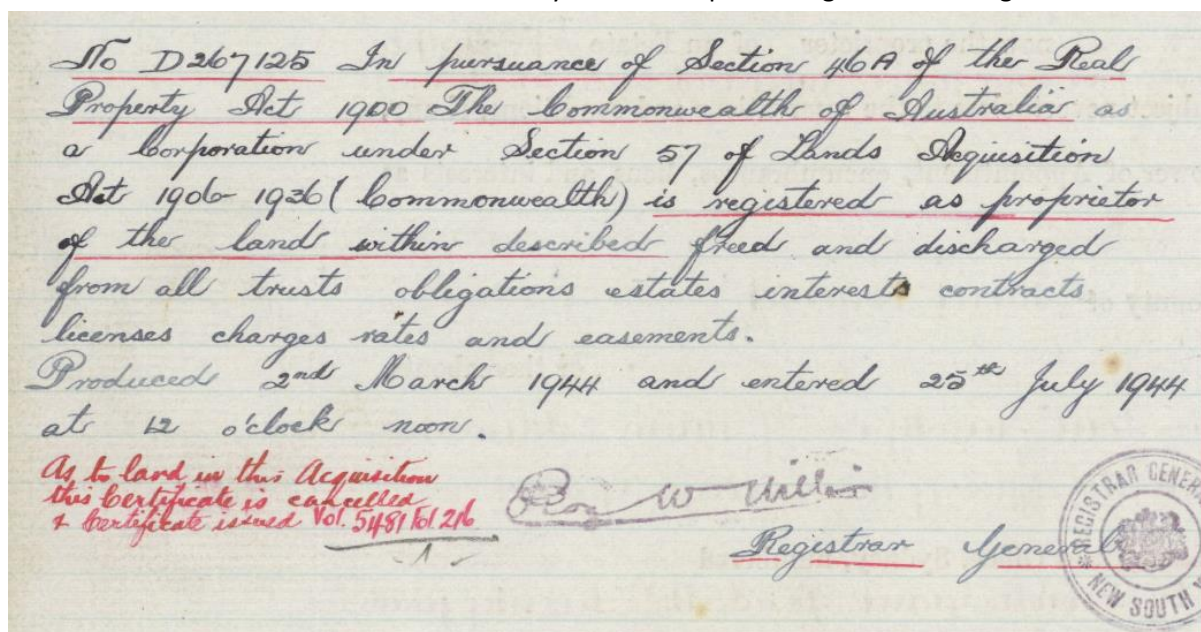 No D267125 In pursuance of Section 46A of the Real
Property Act 1900 The Commonwealth of Australia as
a Corporation under Section 57 of Lands Acquisition
Act 1906-1936 (Commonwealth) is registered as proprietor
of the land within described freed and discharged
from all trusts obligations estates interests contracts
licenses charges rates and easements.
Produced 2nd March 1944 and entered 25th July 1944
at 12 o'clock noon.
As to land in this Acquisition
this Certificate is cancelled
& Certificate issued Vol. 5481 Fol 216
W
Registrar General
REGISTRAR GENER
NEW SOUTH